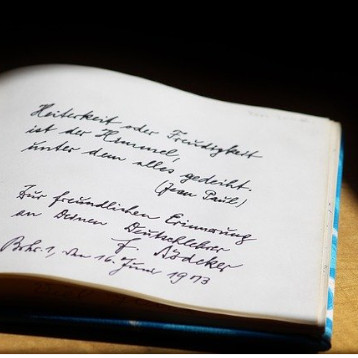 Heiterkeit oder Freudigkeit
ist der Himmel,
unter dem alles gedeiht.
(Jean Paul)
Zur freundlichen Erinnerung
an Deinen Deutschlehrer
F. Rödeker
Bohr. 1, den 16. Juni 1973